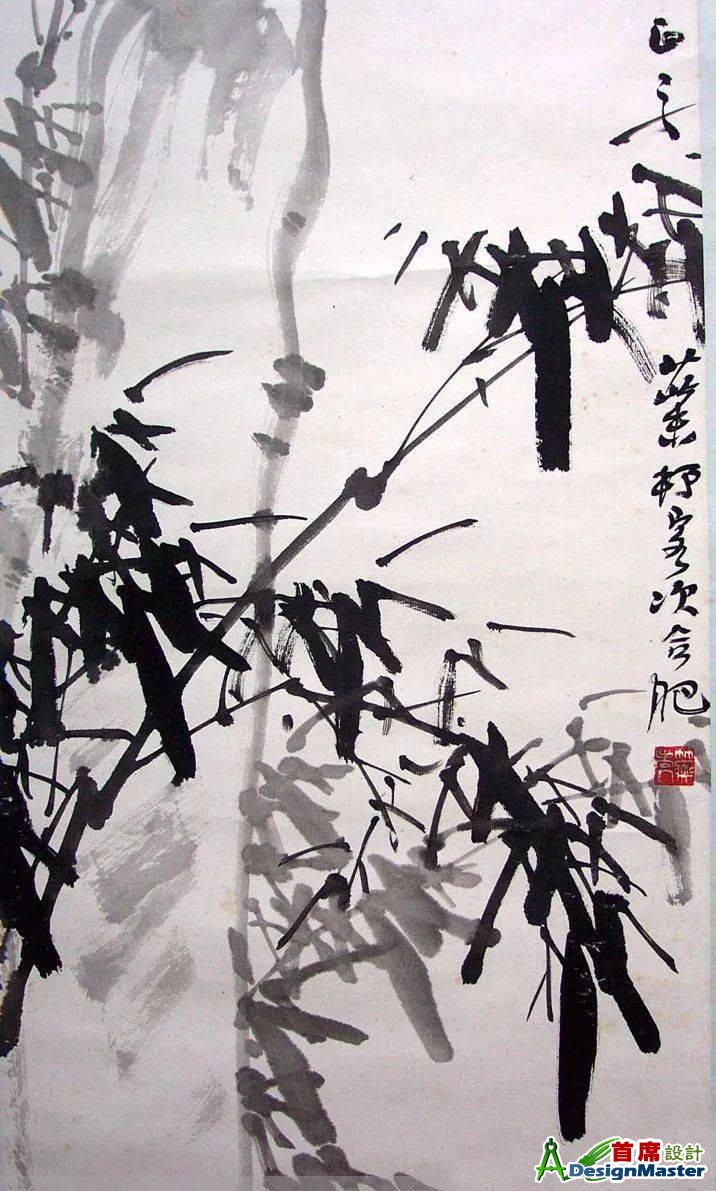 正之 葉村客次合肥
首席設計
DesignMaster